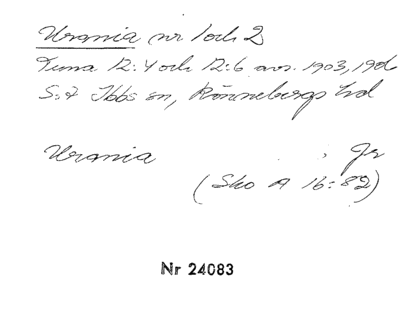 Urania nr 1 och 2
Tuna 12:4 och 12:6 avs. 1903, 1906
S:t Ibbs sn, Rönnebergs hd
Urania , Jr
(Sko A 16:82)
Nr 24083